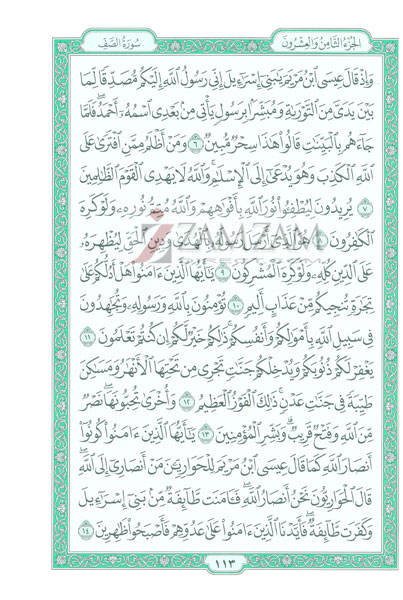 الجُزْءُ الثَّامِنُ وَالْعِشْرُونَ
سُورَةُ الصَّفِّ
وَإِذْ قَالَ عِيسَى ابْنُ مَرْيَمَ يَٰبَنِىٓ إِسْرَٰٓءِيلَ إِنِّى رَسُولُ ٱللَّهِ إِلَيْكُم مُّصَدِّقًا لِّمَا
بَيْنَ يَدَىَّ مِنَ ٱلتَّوْرَىٰةِ وَمُبَشِّرًۢا بِرَسُولٍ يَأْتِى مِنۢ بَعْدِى ٱسْمُهُۥٓ أَحْمَدُ ۖ فَلَمَّا
جَآءَهُم بِٱلْبَيِّنَٰتِ قَالُوا۟ هَٰذَا سِحْرٌ مُّبِينٌ ٦ وَمَنْ أَظْلَمُ مِمَّنِ ٱفْتَرَىٰ عَلَى
ٱللَّهِ ٱلْكَذِبَ وَهُوَ يُدْعَىٰٓ إِلَى ٱلْإِسْلَٰمِ ۚ وَٱللَّهُ لَا يَهْدِى ٱلْقَوْمَ ٱلظَّٰلِمِينَ
٧ يُرِيدُونَ لِيُطْفِـُٔوا۟ نُورَ ٱللَّهِ بِأَفْوَٰهِهِمْ وَٱللَّهُ مُتِمُّ نُورِهِۦ وَلَوْ كَرِهَ
ٱلْكَٰفِرُونَ ٨ هُوَ ٱلَّذِىٓ أَرْسَلَ رَسُولَهُۥ بِٱلْهُدَىٰ وَدِينِ ٱلْحَقِّ لِيُظْهِرَهُۥ
ZAMZAM
عَلَى ٱلدِّينِ كُلِّهِۦ وَلَوْ كَرِهَ ٱلْمُشْرِكُونَ ٩ يَٰٓأَيُّهَا ٱلَّذِينَ ءَامَنُوا۟ هَلْ أَدُلُّكُمْ عَلَىٰ
تِجَٰرَةٍ تُنجِيكُم مِّنْ عَذَابٍ أَلِيمٍ ١٠ تُؤْمِنُونَ بِٱللَّهِ وَرَسُولِهِۦ وَتُجَٰهِدُونَ
فِى سَبِيلِ ٱللَّهِ بِأَمْوَٰلِكُمْ وَأَنفُسِكُمْ ۚ ذَٰلِكُمْ خَيْرٌ لَّكُمْ إِن كُنتُمْ تَعْلَمُونَ ١١
يَغْفِرْ لَكُمْ ذُنُوبَكُمْ وَيُدْخِلْكُمْ جَنَّٰتٍ تَجْرِى مِن تَحْتِهَا ٱلْأَنْهَٰرُ وَمَسَٰكِنَ
طَيِّبَةً فِى جَنَّٰتِ عَدْنٍ ۚ ذَٰلِكَ ٱلْفَوْزُ ٱلْعَظِيمُ ١٢ وَأُخْرَىٰ تُحِبُّونَهَا ۖ نَصْرٌ
مِّنَ ٱللَّهِ وَفَتْحٌ قَرِيبٌ ۗ وَبَشِّرِ ٱلْمُؤْمِنِينَ ١٣ يَٰٓأَيُّهَا ٱلَّذِينَ ءَامَنُوا۟ كُونُوٓا۟
أَنصَارَ ٱللَّهِ كَمَا قَالَ عِيسَى ٱبْنُ مَرْيَمَ لِلْحَوَارِيِّـۧنَ مَنْ أَنصَارِىٓ إِلَى ٱللَّهِ ۖ
قَالَ ٱلْحَوَارِيُّونَ نَحْنُ أَنصَارُ ٱللَّهِ ۖ فَـَٔامَنَت طَّآئِفَةٌ مِّنۢ بَنِىٓ إِسْرَٰٓءِيلَ
وَكَفَرَت طَّآئِفَةٌ ۖ فَأَيَّدْنَا ٱلَّذِينَ ءَامَنُوا۟ عَلَىٰ عَدُوِّهِمْ فَأَصْبَحُوا۟ ظَٰهِرِينَ ١٤
١١٣